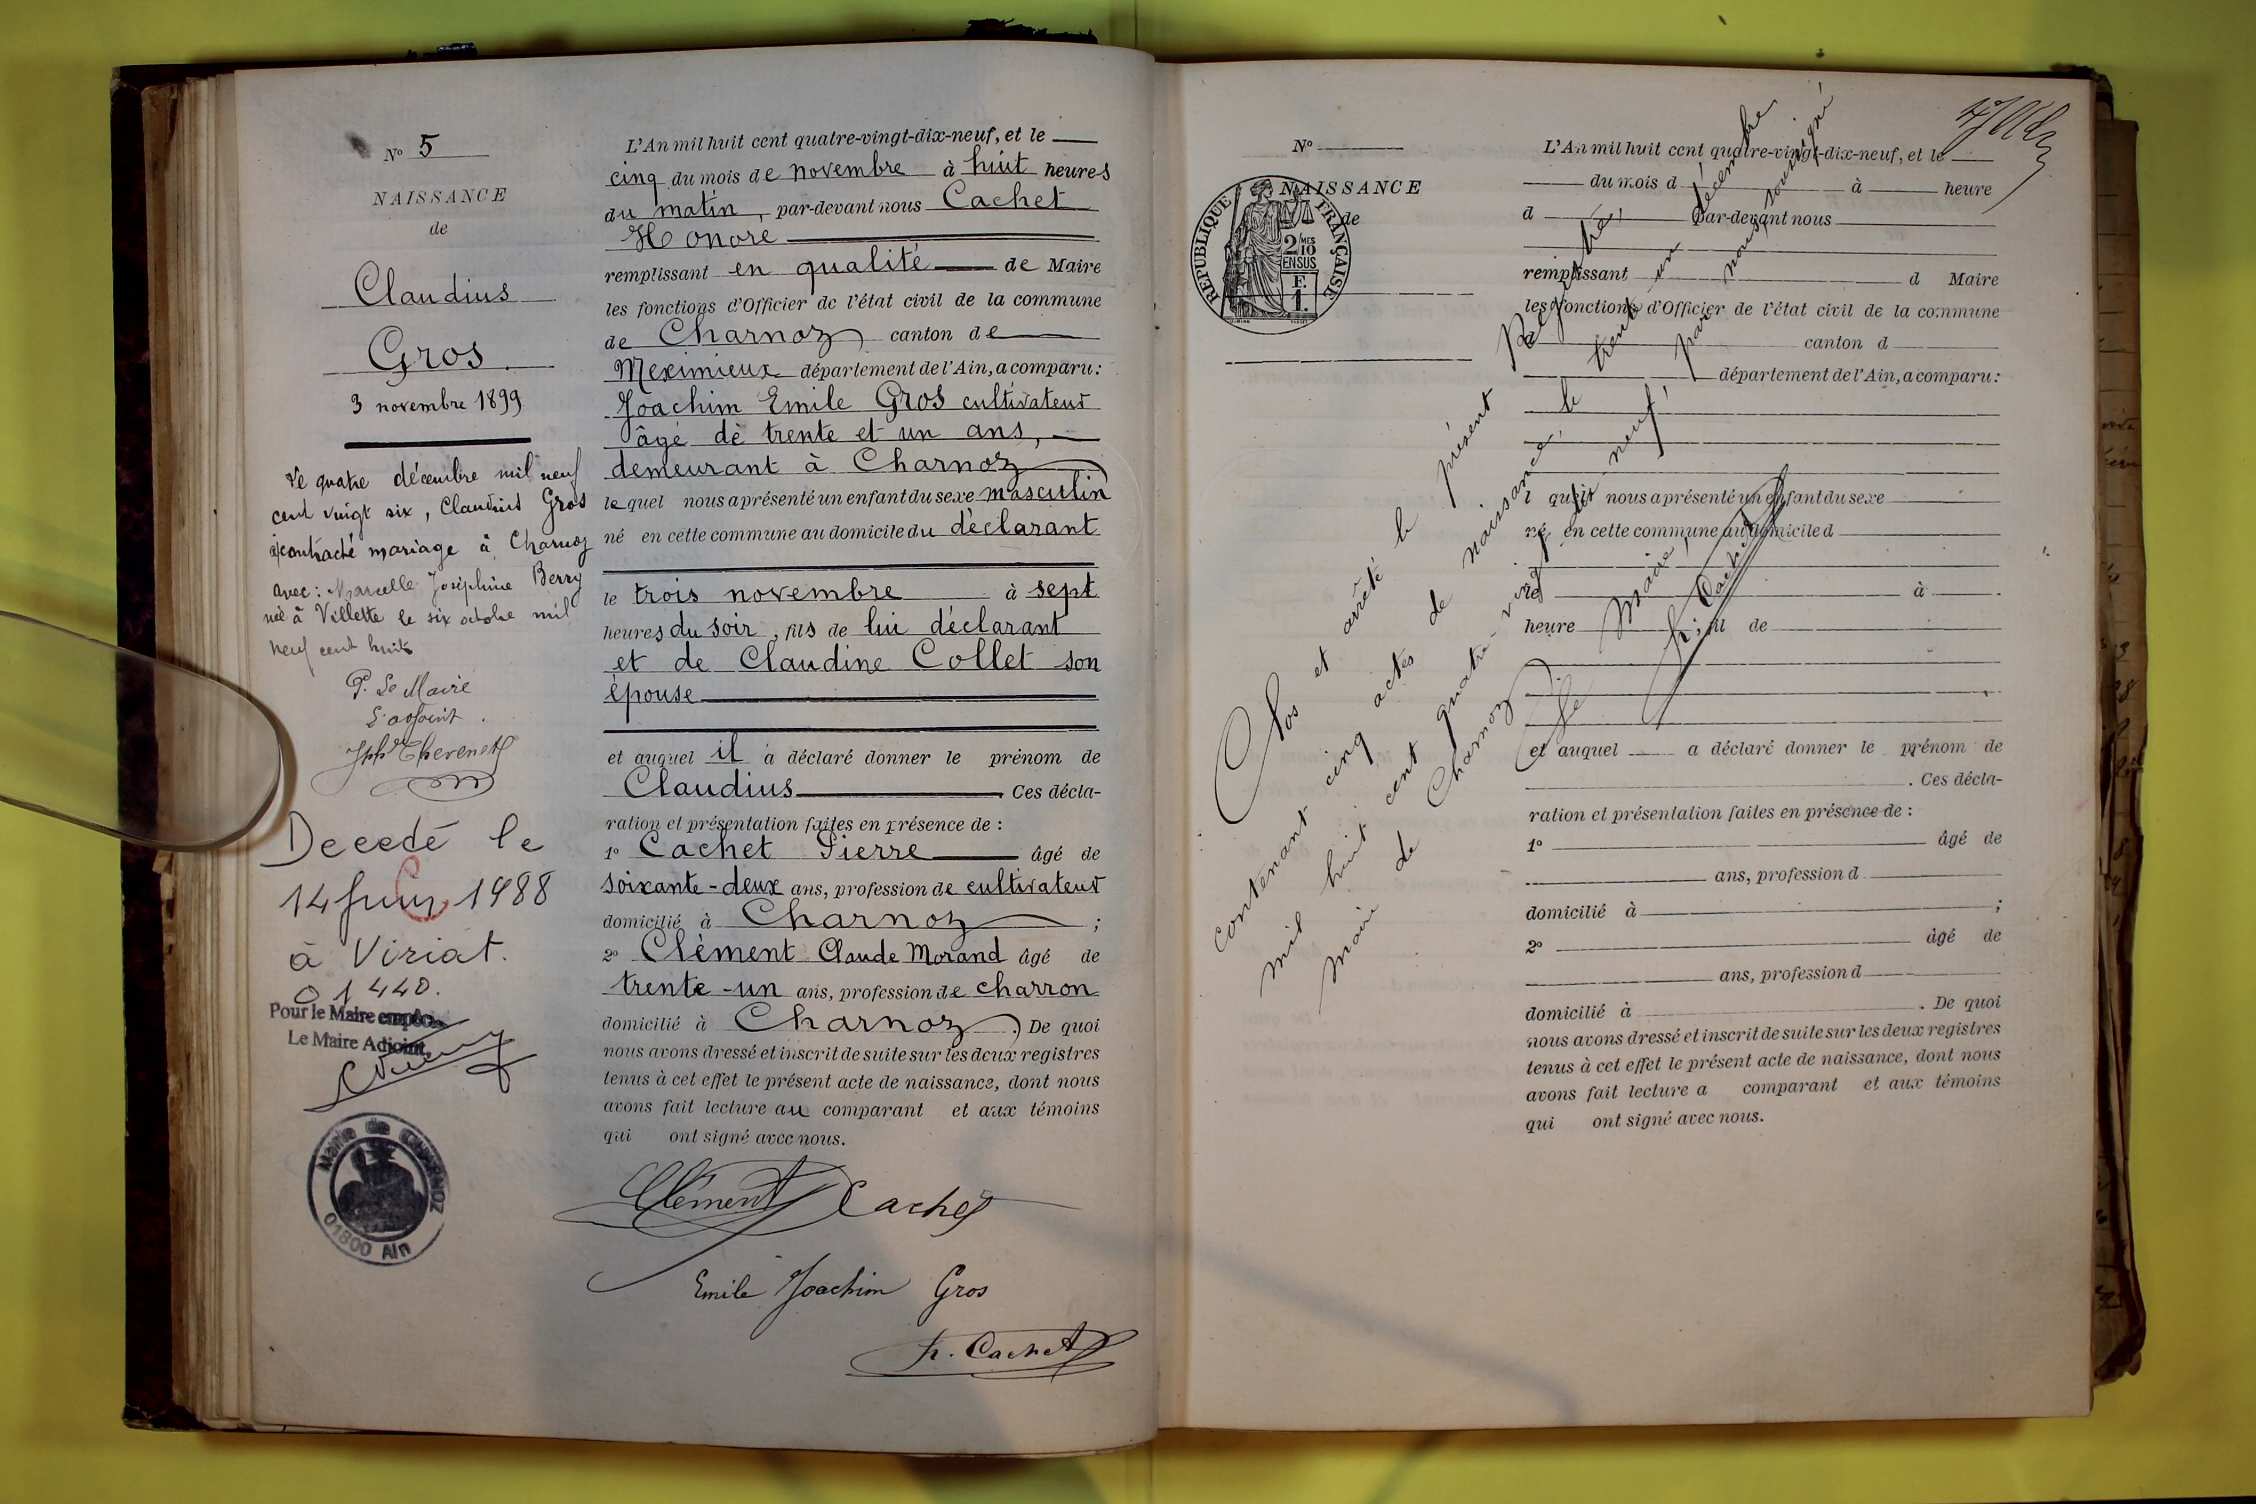 N° 5
NAISSANCE
de
Claudius
Gros
3 novembre 1899
Le quatre décembre mil neuf
cent vingt six, Claudius Gros
a contracté mariage à Charnoz
avec : Marcelle Joséphine Berry
née à Villette le six octobre mil
neuf cent huit
P. Le Maire
L'adjoint
Jph Thevenet
Decedé le
14 Juin 1988
à Viriat.
01440.
Pour le Maire empêché
Le Maire Adjoint,
Mairie de CHARNOZ
01800 Ain
L'An mil huit cent quatre-vingt-dix-neuf, et le
cinq du mois de novembre à huit heures
du matin, par-devant nous Cachet
Honoré
remplissant en qualité de Maire
les fonctions d'Officier de l'état civil de la commune
de Charnoz canton de
Meximieux département de l'Ain, a comparu :
Joachim Emile Gros cultivateur
âgé de trente et un ans,
demeurant à Charnoz
lequel nous a présenté un enfant du sexe masculin
né en cette commune au domicile du déclarant
le trois novembre à sept
heures du soir, fils de lui déclarant
et de Claudine Collet son
épouse
et auquel il a déclaré donner le prénom de
Claudius. Ces décla-
ration et présentation faites en présence de :
1° Cachet Pierre âgé de
soixante-deux ans, profession de cultivateur
domicilié à Charnoz ;
2° Clément Claude Morand âgé de
trente-un ans, profession de charron
domicilié à Charnoz. De quoi
nous avons dressé et inscrit de suite sur les deux registres
tenus à cet effet le présent acte de naissance, dont nous
avons fait lecture au comparant et aux témoins
qui ont signé avec nous.
Clément Cachet
Emile Joachim Gros
h. Cachet
N°
NAISSANCE
de
RÉPUBLIQUE FRANÇAISE
2 MES
10
EN SUS
F.
1.
L'An mil huit cent quatre-vingt-dix-neuf, et le
du mois d à heure
d par-devant nous
remplissant d Maire
les fonctions d'Officier de l'état civil de la commune
d canton d
département de l'Ain, a comparu :
l quel nous a présenté un enfant du sexe
né en cette commune au domicile d
le à
heure , fil de
et auquel a déclaré donner le prénom de
. Ces décla-
ration et présentation faites en présence de :
1° âgé de
ans, profession d
domicilié à ;
2° âgé de
ans, profession d
domicilié à . De quoi
nous avons dressé et inscrit de suite sur les deux registres
tenus à cet effet le présent acte de naissance, dont nous
avons fait lecture a comparant et aux témoins
qui ont signé avec nous.
Clos et arrêté le présent registre,
contenant cinq actes de naissance, le trente un décembre
mil huit cent quatre-vingt-dix-neuf, par nous, soussigné
Maire de Charnoz
Le Maire,
h. Cachet